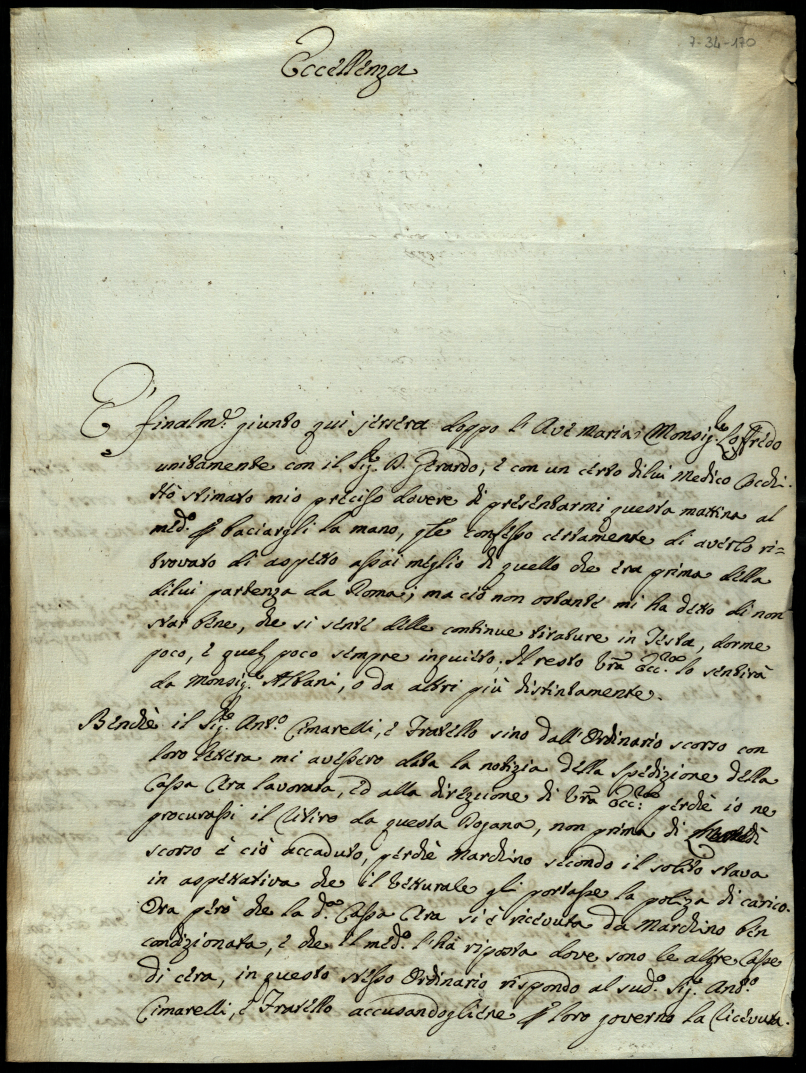 7-34-170
Eccellenza
E' finalm.e giunto qui jersera doppo l'Ave Maria Monsig.re Loffredo
unitamente con il Sig.r D. Gerardo, e con un certo di lui Medico Cecchi.
Hò stimato mio preciso dovere di presentarmi questa mattina al
med.o p baciargli la mano, q.le confesso certamente di averlo ri=
trovato di aspetto assai meglio di quello che era prima della
di lui partenza da Roma; ma ciò non ostante mi ha detto di non
star bene, che si sente delle continue tirature in Testa, dorme
poco, e quel poco sempre inquieto; Il resto Vra Ecc.za lo sentirà
da Monsig.r Albani, o da altri più distintamente.
Benchè il Sig.r Ant.o Cimarelli, e Fratello sino dall'Ordinario scorso con
loro lettera mi avessero data la notizia della spedizione della
Cassa Cera lavorata, ed alla direzzione di Vra Ecc.za perchè io ne
procurassi il ritiro da questa Dogana, non prima di
scorso è ciò accaduto, perchè Marchino secondo il solito stava
in aspettativa che il Vetturale gli portasse la poliza di carico.
Ora però che la d.a Cassa Cera si è ricevuta da Marchino ben
condizionata, e che il med.o l'hà riposta dove sono le altre Casse
di cera, in questo stesso Ordinario rispondo al sud.o Sig.r Ant.o
Cimarelli, e Fratello accusandogliene p loro governo la ricevuta.